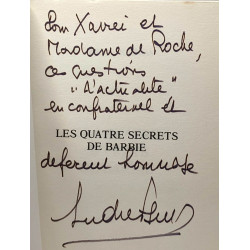 Pour Xavier et
Madame de Roche,
ces questions
"d'actualité"
en confraternel et
LES QUATRE SECRETS
DE BARBIE
déférent hommage